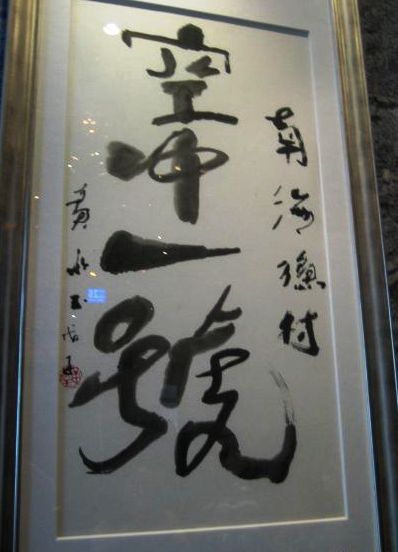 南海渔村
空中一號
黄永玉